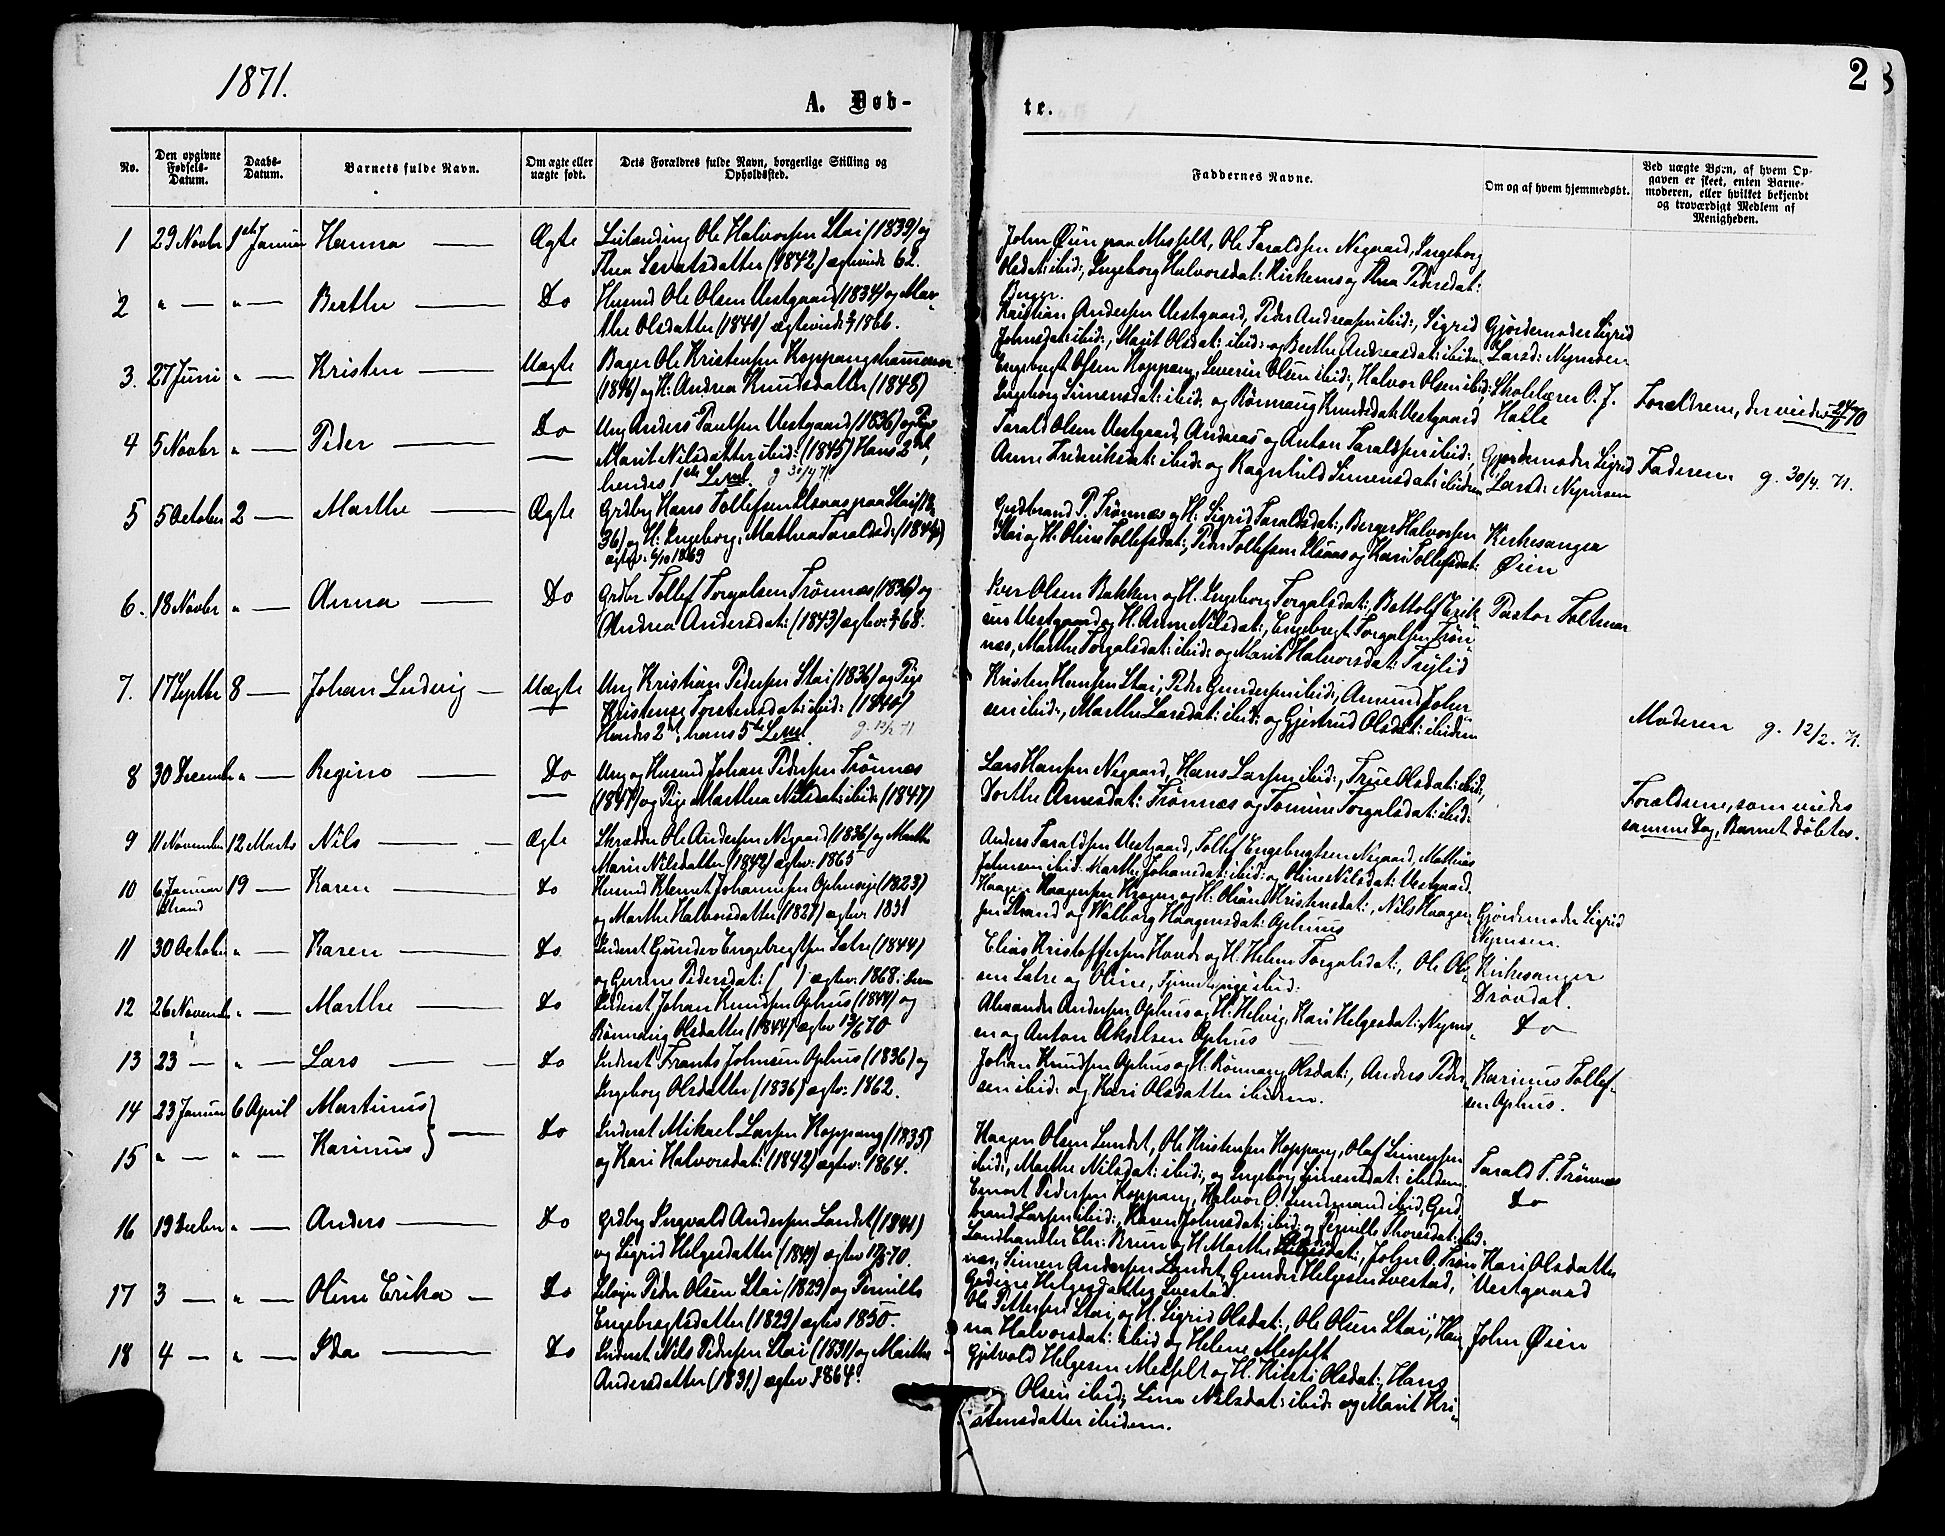 1871.
A. Døb-
te.
2
No.
Den opgivne Fødsels-Datum.
Daabs-Datum.
Barnets fulde Navn.
Om ægte eller uægte født.
Dets Forældres fulde Navn, borgerlige Stilling og Opholdssted.
Faddernes Navne.
Om og af hvem hjemmedøbt.
Ved uægte Børn, af hvem Op-
gaven er skeet, enten Barne-
moderen, eller hvilket bekjendt
og troværdigt Medlem af
Menigheden.
1 29 Novbr 1ste Januar Hanna Ægte Ole Halvorsen Stai (1839) og
Thea (1842) 62.
John Øien paa Messelt, Ole Taraldsen Negaard, Ingeborg
Olsdat: ibid:, Ingeborg Halvorsdat: Kirkemo og Thea Pedersdat:
Berger.
2 " — " — Berthe Do Husmd Ole Olsen Vestgaard (1834) og Mar-
the Olsdatter (1840) 1866.
Kristian Andersen Vestgaard, Peder Andreasen ibid:, Sigrid
Johnsdat: ibid:, Marit Olsdat: ibid: og Berthe Andreasdat: ibidem
Gjordemoder Sigrid
Larsd: Nymoen
3. 27 Juni " — Kristen Uægte Bager Ole Kristensen Koppangshammeren
(1846) og H: Andrea Knudsdatter (1848)
Engebregt Olsen Koppang, Severin Olsen ibid:, Halvor Olsen ibid:,
Ingeborg Simensdat: ibid: og Rønnaug Knudsdat: Vestgaard
Skolelærer O. J.
Halle
Forældrene, der viedes 70
4 5 Novbr " — Peder Do Ung Anders Paulsen Vestgaard (1836) og Pige
Marit Nilsdatter ibid: (1845) Hans 2det,
hendes 1ste Leml. g 30/4 71
Tarald Olsen Vestgaard, Andreas og Anton Taraldsen ibid:,
Anne Frederiksdat: ibid: og Ragnhild Simensdat: ibidem
Gjordemoder Sigrid
Larsd: Nymoen
Faderen g. 30/4. 71.
5 5 October 2 — Marthe Ægte Grdbr Hans Tollefsen paa Stai (18
36) og H: Ingeborg Mathea Taraldsd: (1844)
1869
Gudbrand P. Trønnæs og H: Sigrid Taraldsdat:, Berger Halvorsen
Stai og H: Oline Tollefsdat:, Peder Tollefsen og Kari Tollefsdat:
Kirkesanger
Øien
6. 18 Novbr " — Anna Do Grdbr Tollef Torgalsen Trønnæs (1836) og
Andrea Andersdat: (1843) 68.
Iver Olsen Bakken og H. Ingeborg Torgalsdat:, Bottolf Erik-
sen Vestgaard og H. Anne Nilsdat:, Engebregt Torgalsen Trøn-
næs, Marthe Torgalsdat: ibid: og Marit Halvorsdat:
Pastor
7. 17 Septbr 8 — Johan Ludvig — Uægte Ung Kristian Pedersen Stai (1836) og Pige
Torstensdat: ibid: (1840)
Hendes 2det, hans 5te Leml. g. 12/2 71
Kristen Hansen Stai, Peder Gundersen ibid:, Amund John-
sen ibid:, Marthe Larsdat: ibid: og Gjertrud Olsdat: ibidem
Moderen g. 12/2. 71.
8 30 Decemb " — Regine Do Ung og Husmd Johan Pedersen Trønnæs
(1847) og Pige Marthea Nilsdat: ibid: (1847)
Lars Hansen Negaard, Hans Larsen ibid:, Olsdat: ibid:,
Dorthe Arnesdat: Trønnæs og Tomine Torgalsdat: ibid:
Forældrene, som viedes
samme Dag, Barnet døbtes.
9 11 November 12 Marts Nils Ægte Skrædder Ole Andersen Negaard (1836) og Marthe
Marie Nilsdatter (1842) ægtev: 1865
Anders Taraldsen Vestgaard, Tollef Engebregtsen Negaard, Mathias
Johnsen ibid: Marthe Johansdat: ibid: og Oline Nilsdat: Vestgaard.
10 6 Januar 19 — Karen Do Husmd Klemet Johannesen (1823)
Strand
og Marthe Halvorsdatter (1827) ægtev: 1851
Haagen Haagensen og H: Kristensdat:, Nils Haagen-
sen Strand og Walborg Haagensdat: Ophuus
Gjordemoder Sigrid
Nymoen.
11 30 October " — Karen Do. Inderst Gunder Engebregtsen Sætre (1844)
og Gurine Pedersdat: ( ) ægtev: 1868
Elias Kristoffersen Hovde og H. Helene Torgalsdat:, Ole Ol-
sen Sætre og Oline, ibid:
Kirkesanger
Drøvdal.
12 26 Novemb " — Marthe Do Inderst Johan Knudsen Ophus (1844) og
Rønnaug Olsdatter (1844) ægtev 70
Alexander Andersen Ophus og H: Helvig, Kari Helgesdat: Nymo-
en og Anton Akselsen Ophus
Do
13 23 — " — Lars Do Inderst Frants Johnsen Ophus (1836) og
Ingeborg Olsdatter (1836) ægtev: 1862.
Johan Knudsen Ophus og H: Rønnaug Olsdat:, Anders Peder-
sen ibid: og Kari Olsdatter ibidem.
Karinus Tollef-
sen Ophus.
14 23 Januar 6 April Martinus
15 " — " — Karinus
Do Inderst Mikael Larsen Koppang (1835)
og Kari Halvorsdat: (1842) ægtev: 1864.
Haagen Olsen Lundet, Ole Kristensen Koppang, Olaf Simensen
ibid:, Marthe Nilsdat: ibid:, og Ingeborg Simensdat: ibidem.
Pedersen Koppang, Halvor O. ibid, Gud-
brand Larsen ibid:, Karen Johnsdat: ibid: og Pernille Thoresdat: ibid.
Tarald T. Trønnæs
Do
16 19 Decbr " — Anders Do Grdbr Ingvald Andersen Landet (1841)
og Sigrid Helgesdatter (1849) ægtev 70.
Landhandler Chr: Bruun og H Marthe, John O. Trøn-
næs, Simen Andersen Landet, Gunder Helgesen Evestad,
Helgesdatter Evestad.
Kari Olsdatter
Vestgaard
17 3 — " — Oline Erika — Do Peder Olsen Stai (1829) og Pernille
Engebregtsdatter (1829) ægtev 1850.
Ole Pettersen Stai og H. Sigrid Olsdat:, Ole Olsen Stai, Han-
na Halvorsdat: ibid og Helene Messelt
John Øien
18 4 — " — Ida Do Inderst Nils Pedersen Stai (1831) og Marthe
Andersdatter (1831) ægtev 1864.
Gjetvold Helgesen Messelt og H. Kirsti Olsdat:, Hans
Olsen ibid:, Lina Nilsdat: ibid: og Marit Kri-
stensdatter ibidem.